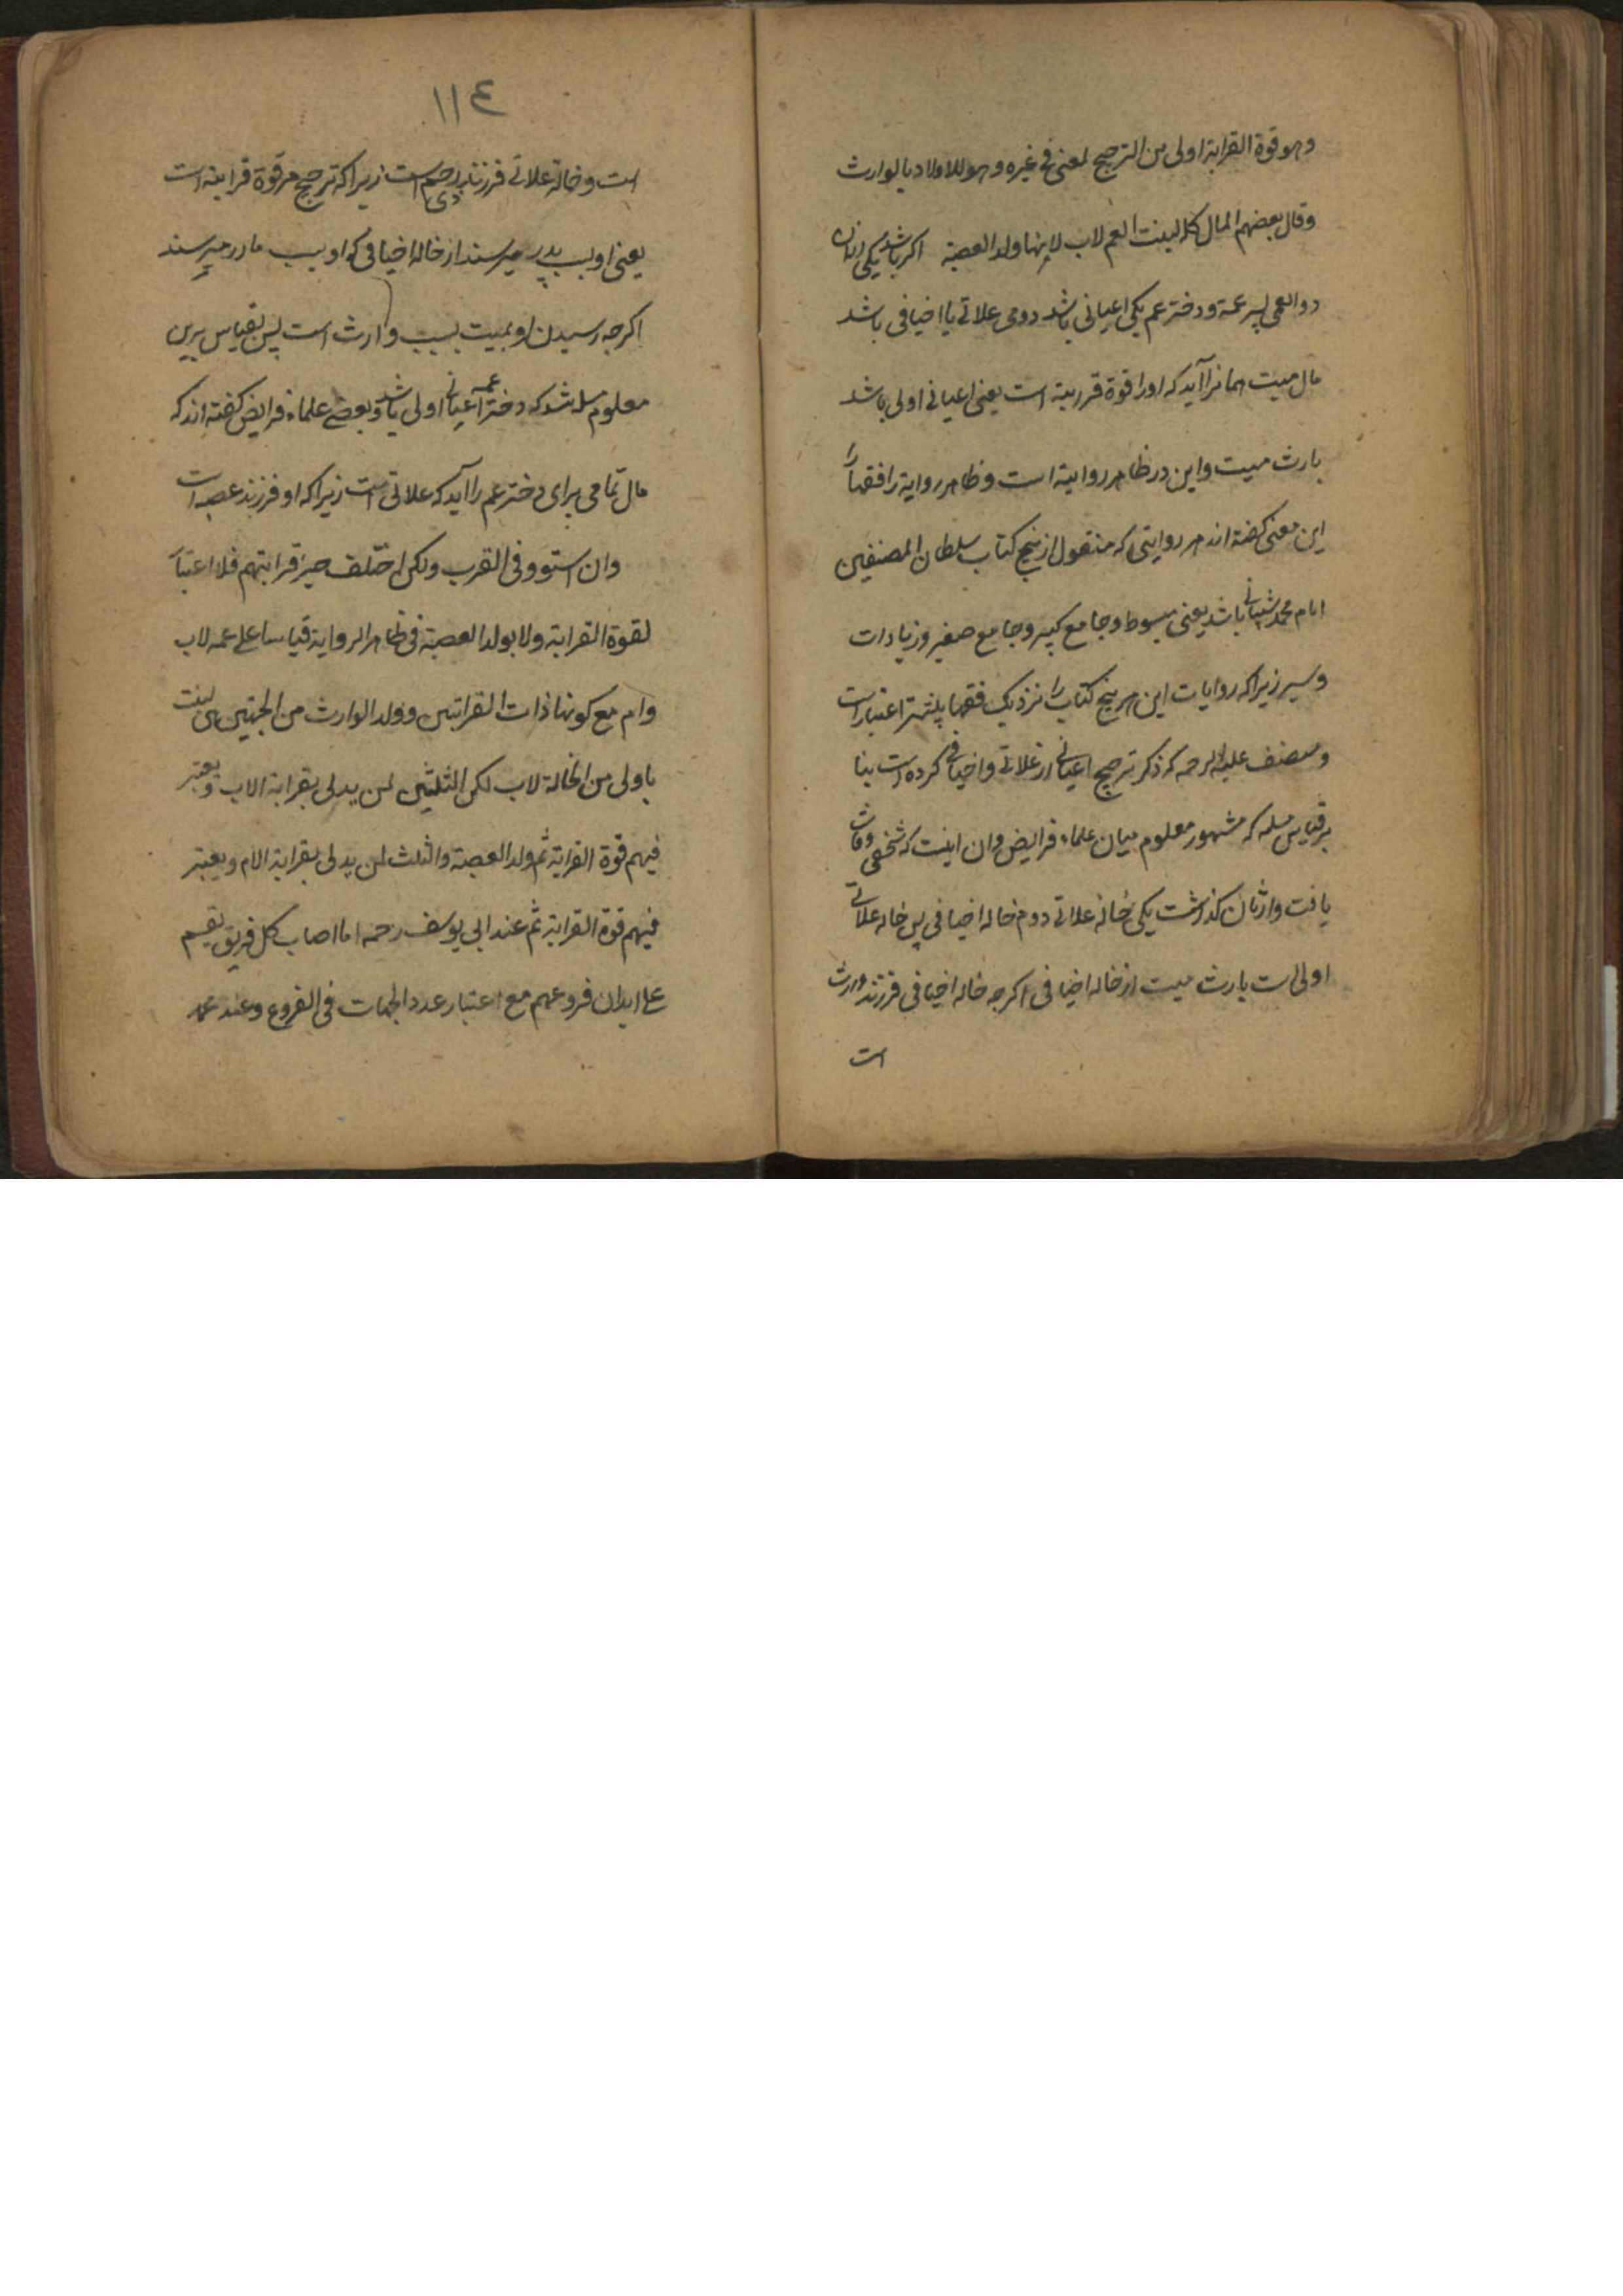 وهو قوة القرابة اولی من الترجیح لمعنی فی غیره وهو للاولاد بالوارث
وقال بعضهم المال کله لبنت العم لاب لانها ولد العصبة اکر باشد یکی ازان
دو العمی پسر عمة ودختر عم یکی اعیانی باشد دومی علاتی یا اخیافی باشد
مال میت همانرا آید که اورا قوة قریبة است یعنی اعیانی اولی باشد
بارث میت واین در ظاهر روایة است وظاهر روایة را فقها را
این معنی کفته اند هر روایتی که منقول از پنج کتاب سلطان المصنفین
امام محمد شیبانی باشد یعنی مبسوط وجامع کبیر وجامع صغیر وزیادات
وسیر زیرا که روایات این هر پنج کتاب را نزدیک فقها بیشتر اعتبار است
ومصنف علیه الرحمه که ذکر ترجیح اعیانی از علاتی واخیافی کرده است بنا
بر قیاس مسله که مشهور معلوم میان علماء فرایض وان اینست که شخصی وفات
یافت وارثان کذاشت یکی خاله علاتی دوم خاله اخیافی پس خاله علاتی
اولی است بارث میت از خاله اخیافی اکرجه خاله اخیافی فرزند وارث
است
١١٤
است وخاله علاتی فرزند ذی رحم است زیرا که ترجیح مر قوة قرابته است
یعنی او بسبب پدر میرسند از خاله اخیافی که او بسبب مادر میرسند
اکرجه رسیدن او بمیت بسبب وارث است پس بقیاس برین
معلوم شد که دختر عمه اعیانی اولی باشد وبعضی علماء فرایض کفته اند که
مال تمامی برای دختر عم را آید که علاتی است زیرا که او فرزند عصبه است
وان استوو فی القرب ولکن اختلف حیز قرابتهم فلا اعتبار
لقوة القرابة ولا بولد العصبة فی ظاهر الروایة قیاسا علی عمه لاب
وام مع کونها ذات القرابتین وولد الوارث من الجهتین لیست
باولی من الخالة لاب لکن الثلثین لمن یدلی بقرابة الاب ویعتبر
فیهم قوة القرابة ثم ولد العصبة والثلث لمن یدلی بقرابة الام ویعتبر
فیهم قوة القرابة ثم عند ابی یوسف رحمه اما اصاب کل فریق یقسم
علی ابدان فروعهم مع اعتبار عدد الجهات فی الفروع وعند محمد